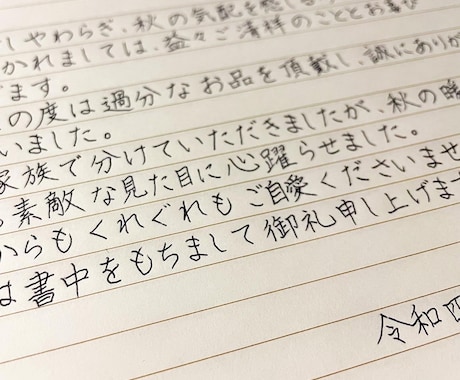 しやわらぎ、秋の気配を感じる
かれましては、益々ご清祥のこととお喜び
ます。
の度は過分なお品を頂戴し、誠にありが
いました。
家族で分けていただきましたが、秋の
素敵な見た目に心躍らせました。
からもくれぐれもご自愛くださいませ
は書中をもちまして御礼申し上げます
令和四